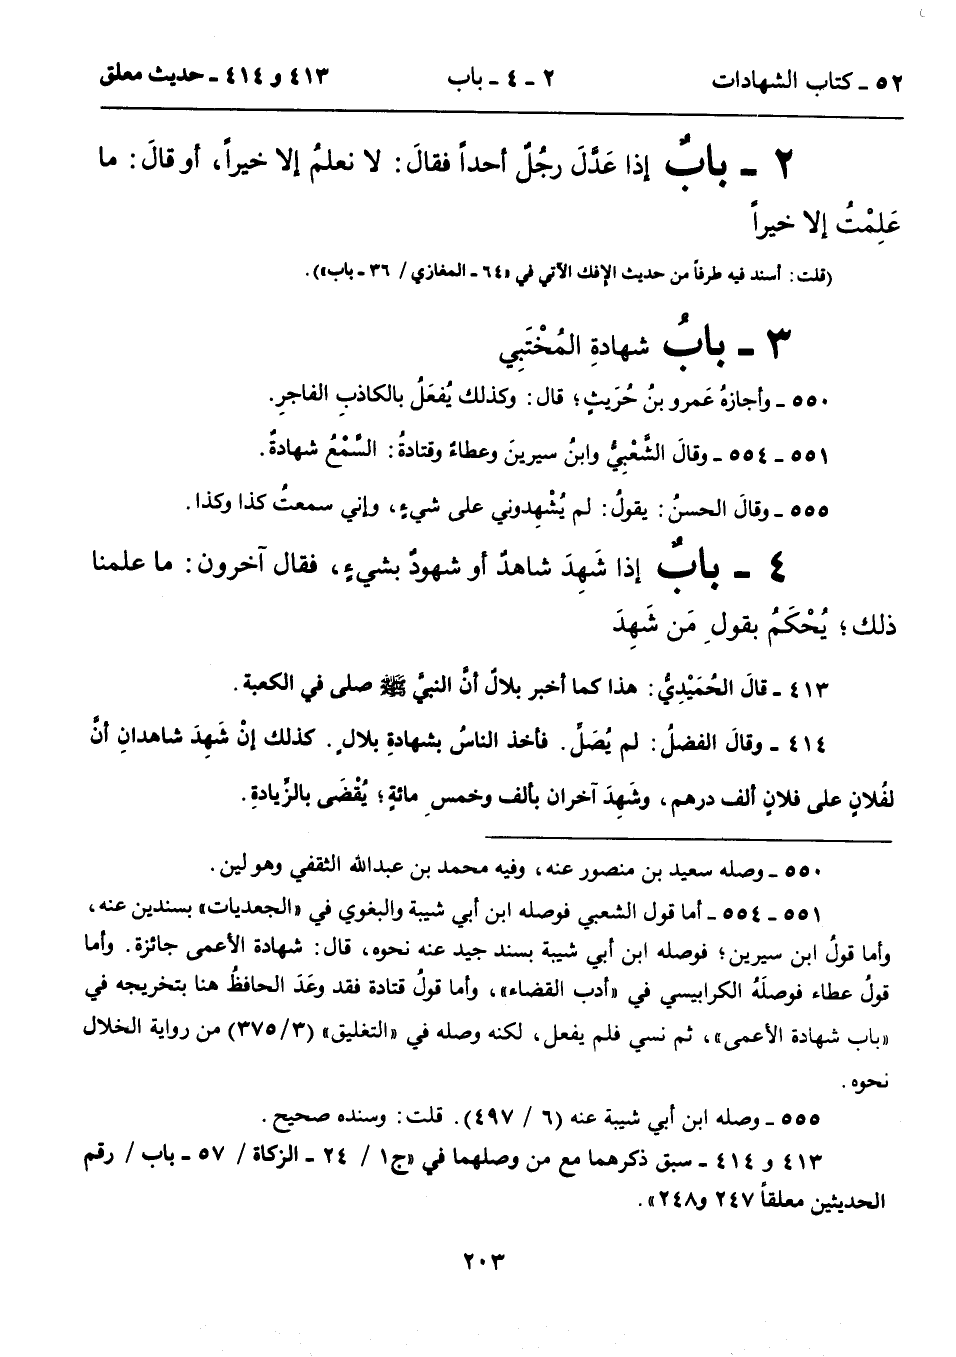 ٥٢ ـ كتاب الشهادات ٢ ـ ٤ ـ باب ٤١٣ و ٤١٤ ـ حديث معلق
٢ ـ بابٌ إذا عَدَّلَ رجُلٌ أحداً فقالَ: لا نعلمُ إلا خيراً، أو قالَ: ما
عَلِمْتُ إلا خيراً
(قلت: أسند فيه طرفاً من حديث الإفك الآتي في «٦٤ ـ المغازي / ٣٦ ـ باب»).
٣ ـ بابُ شهادةِ المُخْتَبِي
٥٥٠ ـ وأجازهُ عَمرو بنُ حُرَيثٍ؛ قال: وكذلك يُفعَلُ بالكاذبِ الفاجرِ.
٥٥١ ـ ٥٥٤ ـ وقالَ الشَّعْبِيُّ وابنُ سيرينَ وعطاءٌ وقتادةُ: السَّمْعُ شهادةٌ.
٥٥٥ ـ وقالَ الحسنُ: يقولُ: لم يُشْهِدوني على شيءٍ، وإني سمعتُ كذا وكذا.
٤ ـ بابٌ إذا شَهِدَ شاهدٌ أو شهودٌ بشيءٍ، فقال آخرون: ما علمنا
ذلك؛ يُحْكَمُ بقولِ مَن شَهِدَ
٤١٣ ـ قالَ الحُمَيْدِيُّ: هذا كما أخبر بلالٌ أنَّ النبيَّ ﷺ صلى في الكعبة.
٤١٤ ـ وقالَ الفضلُ: لم يُصَلِّ. فأخذ الناسُ بشهادةِ بلالٍ. كذلك إنْ شَهِدَ شاهدانِ أنَّ
لفُلانٍ على فلانٍ ألف درهم، وشَهِدَ آخران بألف وخمسِ مائةٍ؛ يُقْضَى بالزِّيادةِ.
٥٥٠ ـ وصله سعيد بن منصور عنه، وفيه محمد بن عبدالله الثقفي وهو لين.
٥٥١ ـ ٥٥٤ ـ أما قول الشعبي فوصله ابن أبي شيبة والبغوي في «الجعديات» بسندين عنه،
وأما قولُ ابن سيرين؛ فوصله ابن أبي شيبة بسند جيد عنه نحوه، قال: شهادة الأعمى جائزة. وأما
قولُ عطاء فوصلَهُ الكرابيسي في «أدب القضاء»، وأما قولُ قتادة فقد وعَدَ الحافظُ هنا بتخريجه في
«باب شهادة الأعمى»، ثم نسي فلم يفعل، لكنه وصله في «التغليق» (٣/٣٧٥) من رواية الخلال
نحوه.
٥٥٥ ـ وصله ابن أبي شيبة عنه (٦ / ٤٩٧). قلت: وسنده صحيح.
٤١٣ و ٤١٤ ـ سبق ذكرهما مع من وصلهما في «ج١ / ٢٤ ـ الزكاة / ٥٧ ـ باب / رقم
الحديثين معلقاً ٢٤٧ و٢٤٨».
٢٠٣